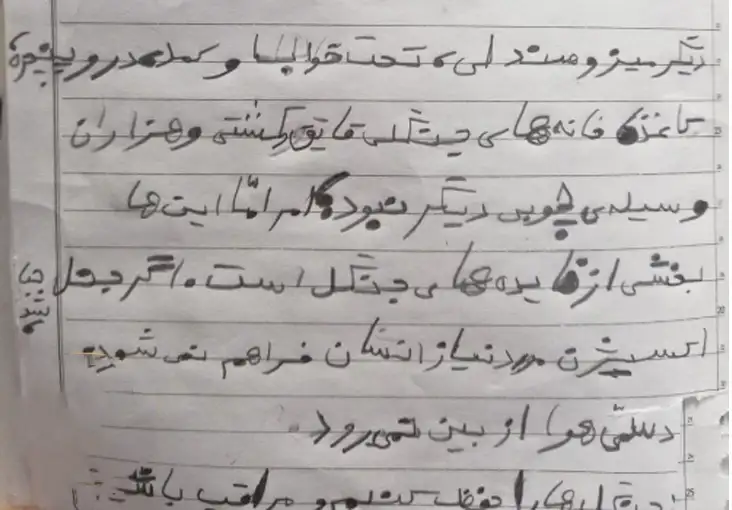 دیگر میز و صندلی، تختخواب و کمد، در و پنجره
کاغذ، خانه‌های جنگلی قایق، کشتی و هزاران
وسیله‌ی چوبی دیگر نبود. امّا این‌ها
بخشی از فایده‌های جنگل است. اگر جنگل
اکسیژن مورد نیاز انسان فراهم نمی‌شود
سمّی هوا از بین نمی‌رود.
جنگل‌ها را حفظ کنیم و مراقب باشیم